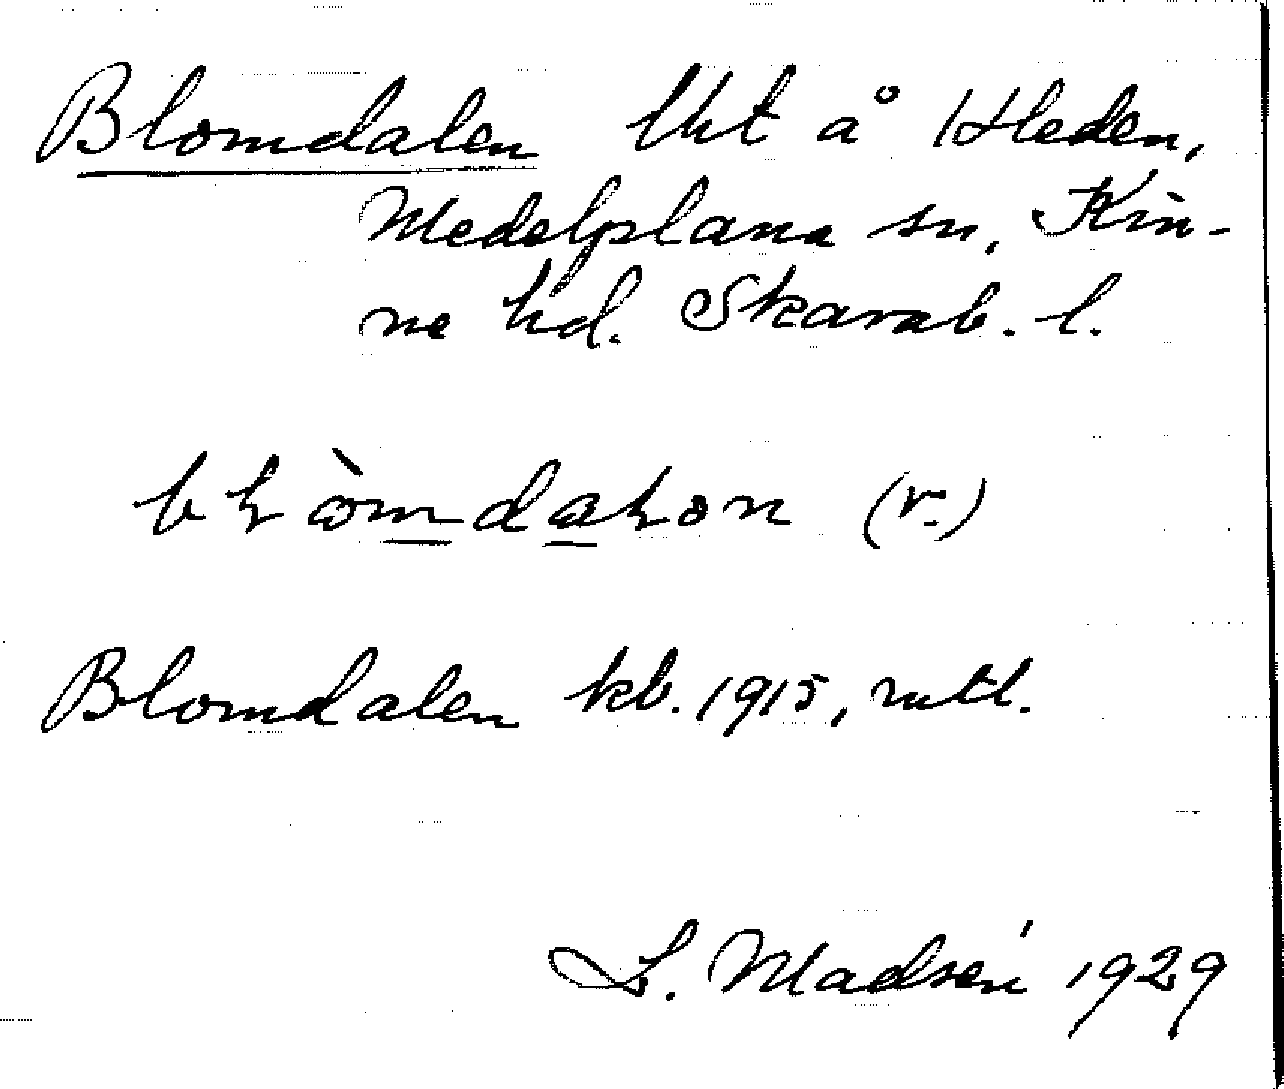 Blomdalen lht å Heden,
Medelplana sn, Kin-
ne hd. Skarab. l.
(r.)
Blomdalen kb. 1915, mtl.
L. Madsén 1929